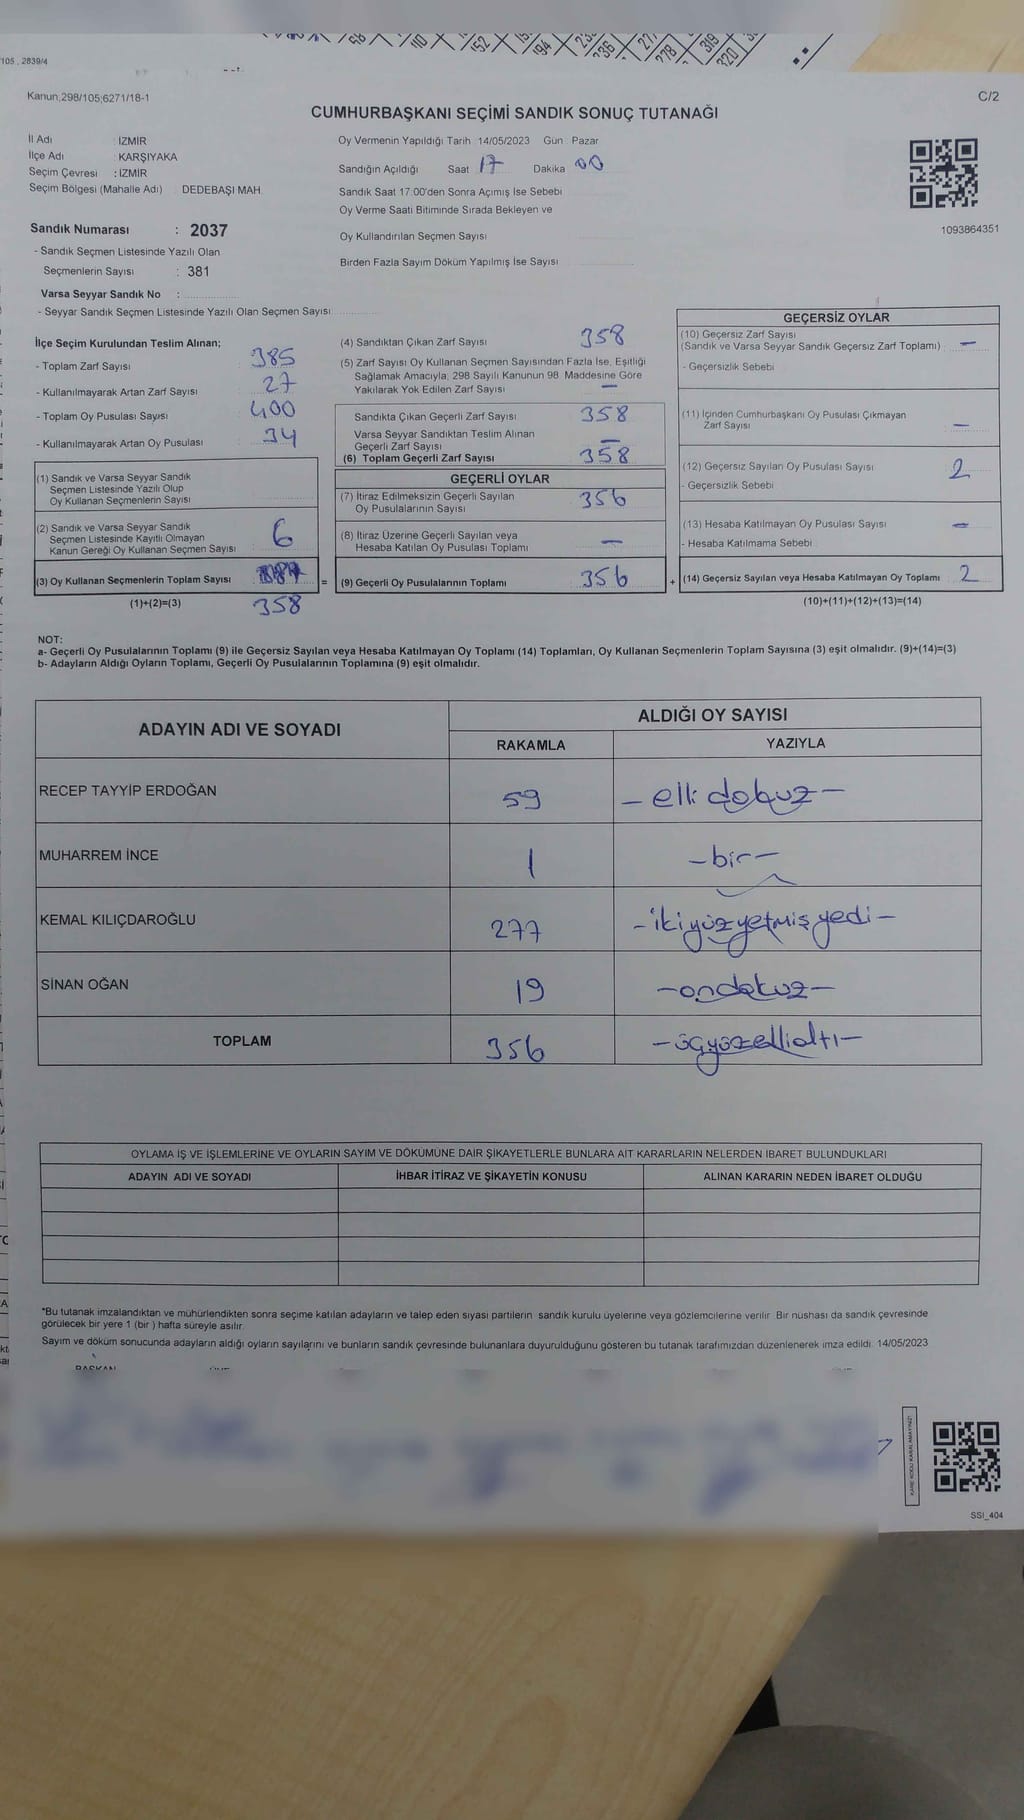 105 , 2839/4
Kanun;298/105;6271/18-1
C/2
CUMHURBAŞKANI SEÇİMİ SANDIK SONUÇ TUTANAĞI
İl Adı : İZMİR
İlçe Adı : KARŞIYAKA
Seçim Çevresi : İZMİR
Seçim Bölgesi (Mahalle Adı) : DEDEBAŞI MAH.
Oy Vermenin Yapıldığı Tarih : 14/05/2023 Gün : Pazar
Sandığın Açıldığı Saat 17 Dakika 00
Sandık Saat 17:00'den Sonra Açımış İse Sebebi
Oy Verme Saati Bitiminde Sırada Bekleyen ve
Oy Kullandırılan Seçmen Sayısı
Birden Fazla Sayım Döküm Yapılmış İse Sayısı
1093864351
Sandık Numarası : 2037
- Sandık Seçmen Listesinde Yazılı Olan
Seçmenlerin Sayısı : 381
Varsa Seyyar Sandık No :
- Seyyar Sandık Seçmen Listesinde Yazılı Olan Seçmen Sayısı:
İlçe Seçim Kurulundan Teslim Alınan;
- Toplam Zarf Sayısı 385
- Kullanılmayarak Artan Zarf Sayısı 27
- Toplam Oy Pusulası Sayısı 400
- Kullanılmayarak Artan Oy Pusulası 34
(1) Sandık ve Varsa Seyyar Sandık
Seçmen Listesinde Yazılı Olup
Oy Kullanan Seçmenlerin Sayısı
(2) Sandık ve Varsa Seyyar Sandık
Seçmen Listesinde Kayıtlı Olmayan
Kanun Gereği Oy Kullanan Seçmen Sayısı 6
(3) Oy Kullanan Seçmenlerin Toplam Sayısı =
(1)+(2)=(3) 358
(4) Sandıktan Çıkan Zarf Sayısı 358
(5) Zarf Sayısı Oy Kullanan Seçmen Sayısından Fazla İse, Eşitliği
Sağlamak Amacıyla; 298 Sayılı Kanunun 98. Maddesine Göre
Yakılarak Yok Edilen Zarf Sayısı —
Sandıkta Çıkan Geçerli Zarf Sayısı 358
Varsa Seyyar Sandıktan Teslim Alınan
Geçerli Zarf Sayısı —
(6) Toplam Geçerli Zarf Sayısı 358
GEÇERLİ OYLAR
(7) İtiraz Edilmeksizin Geçerli Sayılan
Oy Pusulalarının Sayısı 356
(8) İtiraz Üzerine Geçerli Sayılan veya
Hesaba Katılan Oy Pusulası Toplamı —
(9) Geçerli Oy Pusulalarının Toplamı 356 +
GEÇERSİZ OYLAR
(10) Geçersiz Zarf Sayısı
(Sandık ve Varsa Seyyar Sandık Geçersiz Zarf Toplamı) —
- Geçersizlik Sebebi
(11) İçinden Cumhurbaşkanı Oy Pusulası Çıkmayan
Zarf Sayısı —
(12) Geçersiz Sayılan Oy Pusulası Sayısı 2
- Geçersizlik Sebebi
(13) Hesaba Katılmayan Oy Pusulası Sayısı —
- Hesaba Katılmama Sebebi
(14) Geçersiz Sayılan veya Hesaba Katılmayan Oy Toplamı 2
(10)+(11)+(12)+(13)=(14)
NOT:
a- Geçerli Oy Pusulalarının Toplamı (9) ile Geçersiz Sayılan veya Hesaba Katılmayan Oy Toplamı (14) Toplamları, Oy Kullanan Seçmenlerin Toplam Sayısına (3) eşit olmalıdır. (9)+(14)=(3)
b- Adayların Aldığı Oyların Toplamı, Geçerli Oy Pusulalarının Toplamına (9) eşit olmalıdır.
ADAYIN ADI VE SOYADI ALDIĞI OY SAYISI
RAKAMLA YAZIYLA
RECEP TAYYİP ERDOĞAN 59 – elli dokuz –
MUHARREM İNCE 1 – bir –
KEMAL KILIÇDAROĞLU 277 – ikiyüzyetmişyedi –
SİNAN OĞAN 19 – ondokuz –
TOPLAM 356 – üçyüzellialtı –
OYLAMA İŞ VE İŞLEMLERİNE VE OYLARIN SAYIM VE DÖKÜMÜNE DAİR ŞİKAYETLERLE BUNLARA AİT KARARLARIN NELERDEN İBARET BULUNDUKLARI
ADAYIN ADI VE SOYADI İHBAR İTİRAZ VE ŞİKAYETİN KONUSU ALINAN KARARIN NEDEN İBARET OLDUĞU
*Bu tutanak imzalandıktan ve mühürlendikten sonra seçime katılan adayların ve talep eden siyasi partilerin sandık kurulu üyelerine veya gözlemcilerine verilir. Bir nüshası da sandık çevresinde
görülecek bir yere 1 (bir ) hafta süreyle asılır.
Sayım ve döküm sonucunda adayların aldığı oyların sayılarını ve bunların sandık çevresinde bulunanlara duyurulduğunu gösteren bu tutanak tarafımızdan düzenlenerek imza edildi. 14/05/2023
BAŞKAN
SSİ_404